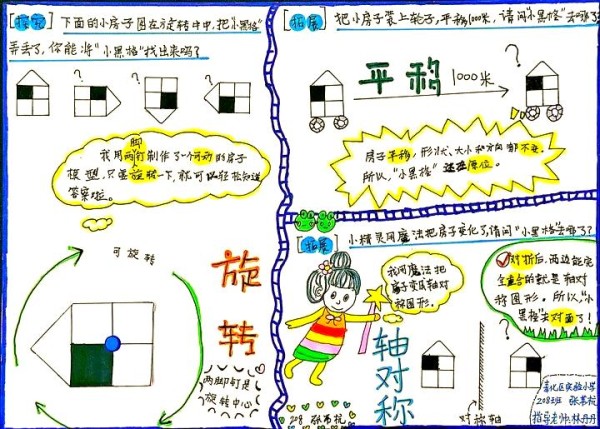 [探究] 下面的小房子图在旋转中中,把"小黑格"
弄丢了,你能将"小黑格"找出来吗?
?
?
?
我用两脚钉制作了一个可动的房子
模型,只要旋转一下,就可以轻松知道
答案啦。
可旋转
旋
转
两脚钉是
旋转中心
[拓展] 把小房子装上轮子,平移1000米,请问"小黑格"去哪了?
?
平移 1000米
房子平移,形状、大小和方向都不变。
所以,"小黑格"还在原位。
[拓展] 小精灵用魔法把房子变化了,请问"小黑格"去哪了?
我用魔法把
房子变成轴对
称图形。
对折后,两边能完
全重合的就是轴对
称图形。所以,"小
黑格"去对面了!
轴
对
称
?
对称轴
实验小学
指导老师:林丹丹